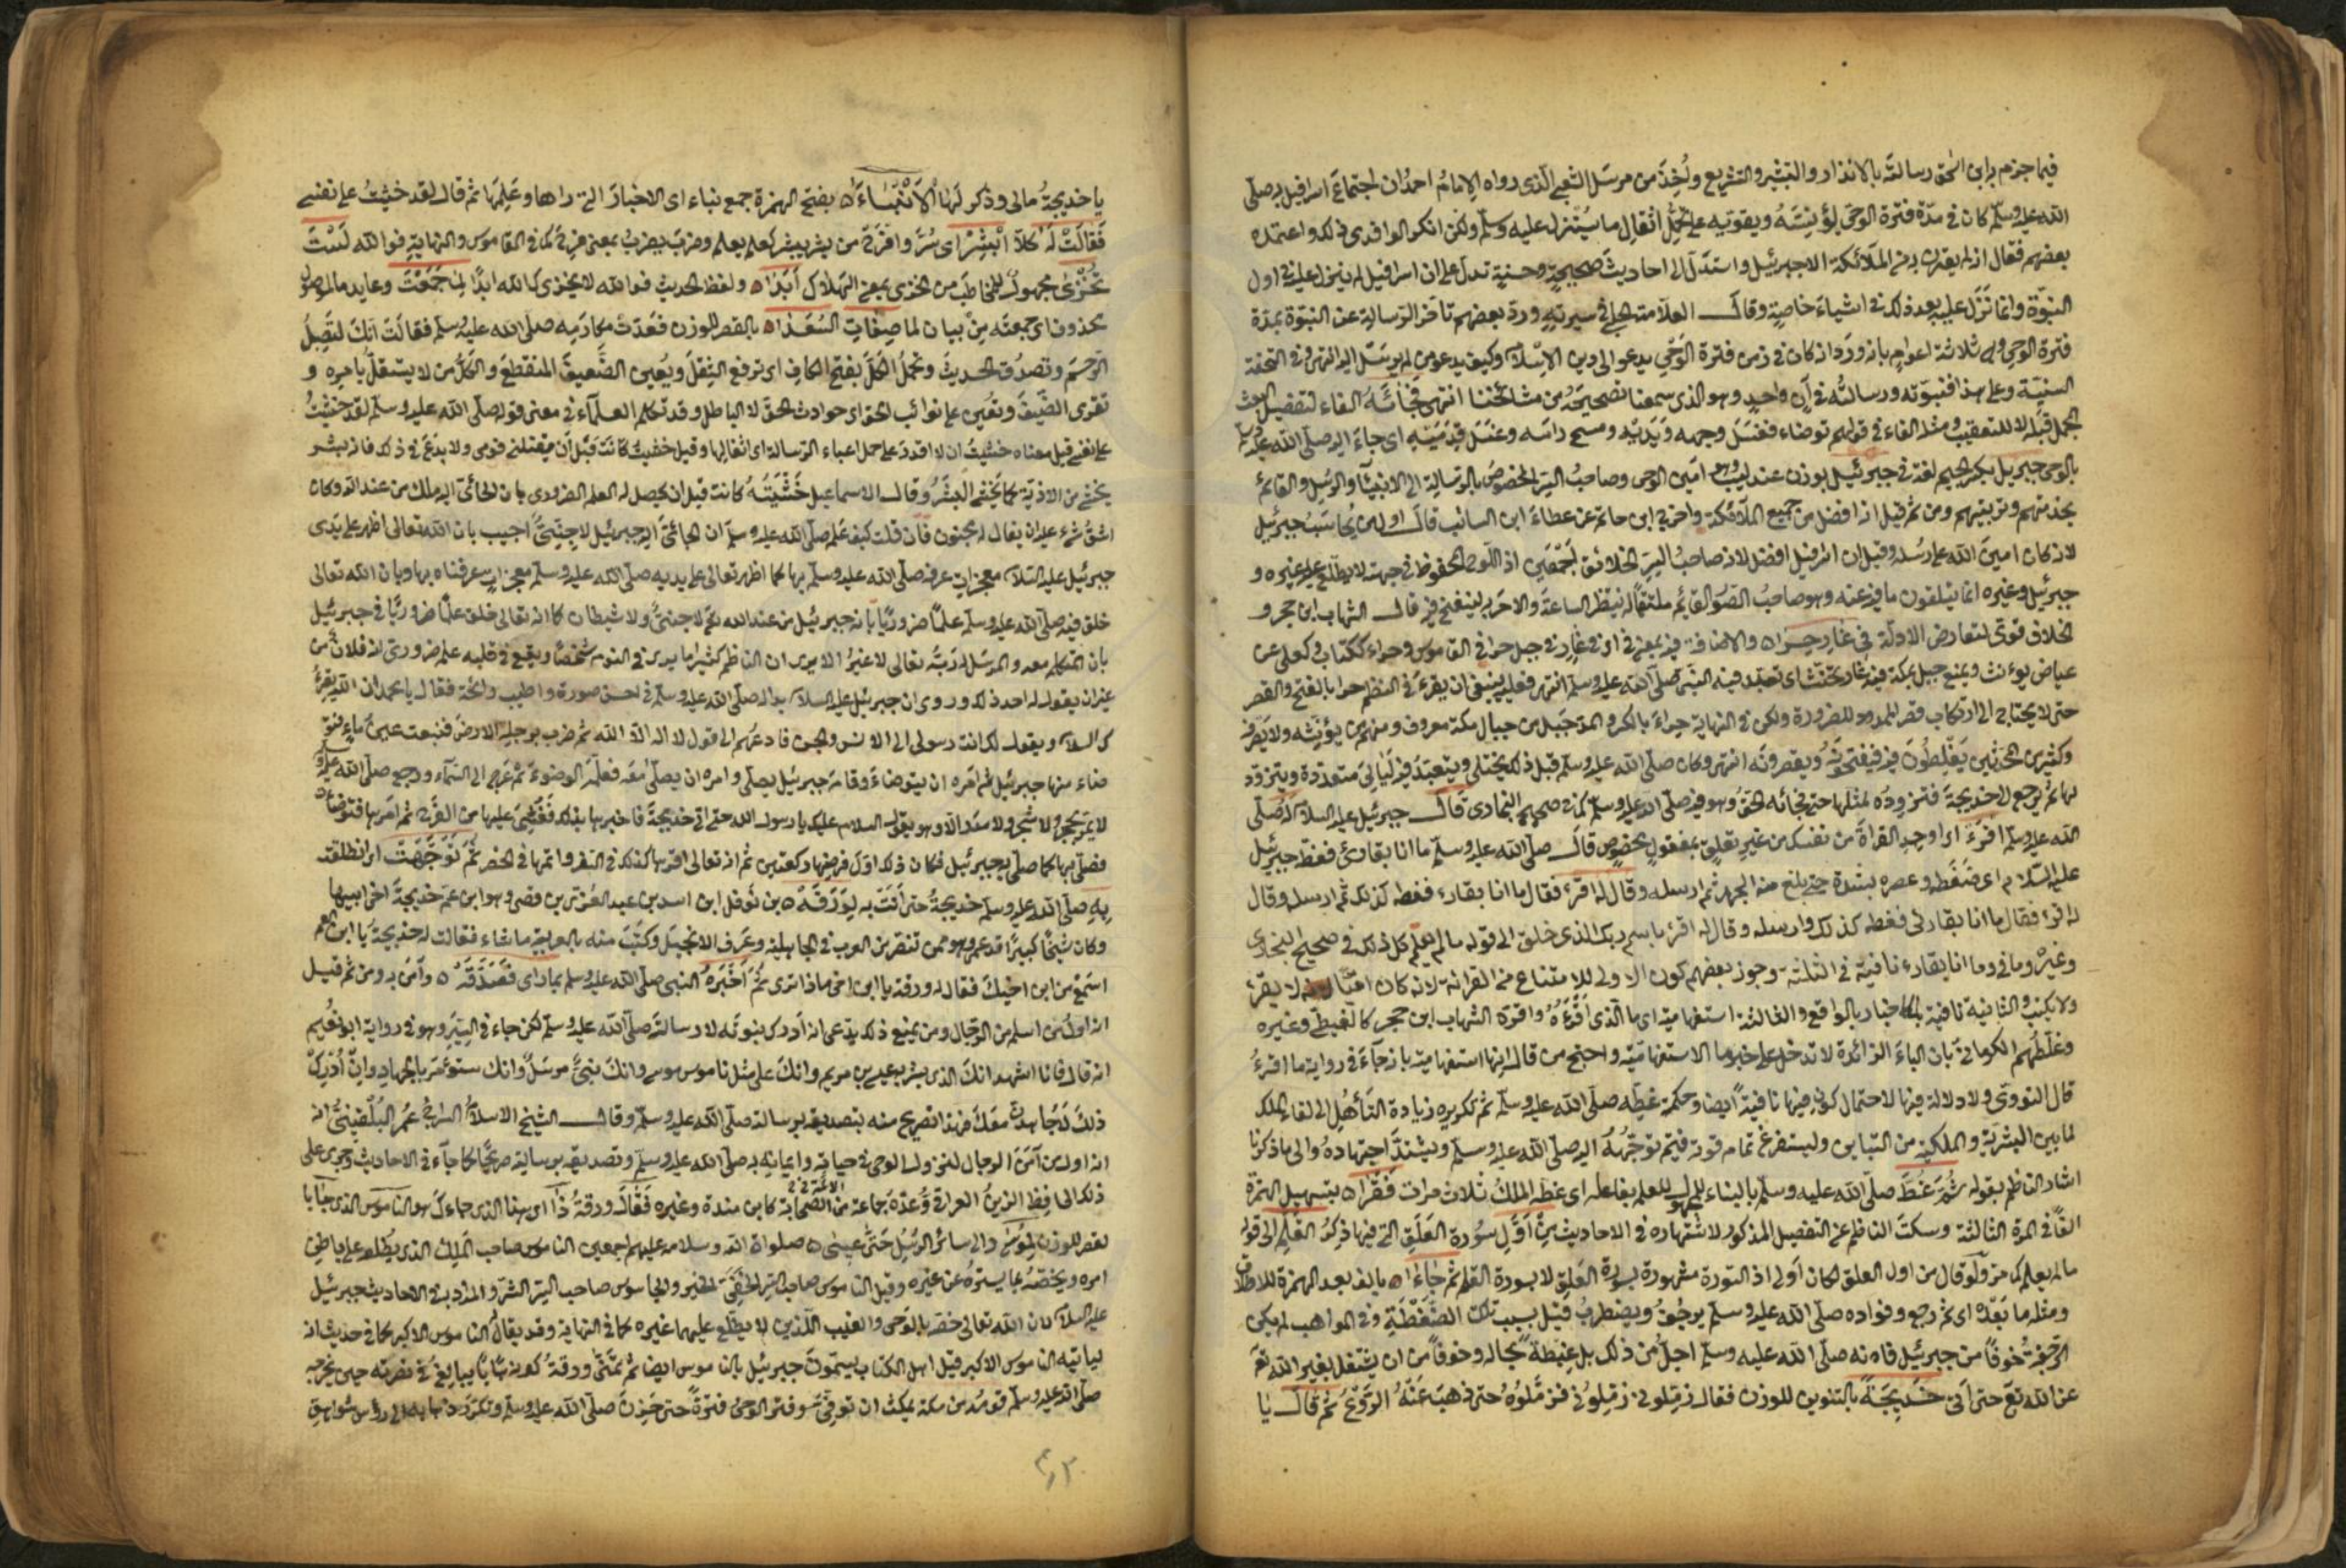 فيما جزم به ابن اسحق رسالته بالانذار والتبشير والتشريع ولأخذ من مرسل الشعبي الذى رواه الامام احمد ان اجتماع اسرافيل به صلى
الله عليه وسلم كان فى مدة فترة الوحى ليؤنسه ويقويه على تحمل اثقال ما سيتنزل عليه وسلم ولكن انكر الواقدى ذلك واعتمده
بعضهم فقال انه لم يقترن به من الملائكة الا جبرئيل واستدل الى احاديث صحيحة وحسنة تدل على ان اسرافيل لم ينزل عليه فى اول
النبوة وانما نزل عليه بعد ذلك فى اشياء خاصة وقال العلامة الحلبى فى سيرته ورد بعضهم تاخر الرسالة عن النبوة بمدة
فترة الوحى وهى ثلاثة اعوام بانه ورد انه كان فى زمن فترة الوحى يدعو الى دين الاسلام وكيف يدعو من لم يرسل اليه انتهى وفى التحفة
السنية وعلى هذا فنبوته ورسالته فى آن واحد وهو الذى سمعنا تصحيحه من مشائخنا انتهى فجائه الفاء لتفصيل
المجمل قبله لا للتعقيب ومثله الفاء فى قولهم توضاء فغسل وجهه ويديه ومسح راسه وغسل قدميه اى جاء اليه صلى الله عليه
بالوحى جبريل بكسر الجيم لغة فى جبرئيل بوزن عندليب وهو امين الوحى وصاحب السر المخصوص بالرسالة الى الانبياء والرسل والقائم
بخدمتهم وتربيتهم ومن ثم قيل انه افضل من جميع الملائكة واخرج ابن حاتم عن عطاء ابن السائب قال اول من يحاسب جبرئيل
لانه كان امين الله على رسله وقيل ان اسرافيل افضل لانه صاحب سر الخلائق اجمعين اذ اللوح المحفوظ فى جبهته لا يطلع عليه غيره و
جبرئيل وغيره انما يتلقون ما فيه عنه وهو صاحب الصور القائم ملتقما له ينتظر الساعة والامر به لينفخ فيه قال الشهاب ابن حجر و
الخلاف قوى لتعارض الادلة فى غار حراء والاضافة فيه بمعنى فى اذ الغار فى جبل حراء فى القاموس وحراء ككتاب وكعلى عن
عياض يؤنث ويمنع جبل بمكة فيه غار تحنث اى تعبد فيه النبى صلى الله عليه وسلم انتهى فعليه ينبغى ان يقرء فى النظم حرا بالفتح والقصر
حتى لا يحتاج الى ارتكاب قصر الممدود للضرورة ولكن فى النهاية حراء بالكسر والمد جبل من جبال مكة معروف ومنهم من يؤنثه ولا يصرفه
وكثير من المحدثين يغلطون فيه فيفتحونه ويقصرونه انتهى وكان صلى الله عليه وسلم قبل ذلك يختلى ويتعبد فيه ليالى متعددة ويتزود
لها ثم يرجع الى خديجة فتزوده لمثلها حتى فجائه الحق وهو فيه صلى الله عليه وسلم كما فى صحيح البخارى قال جبرئيل عليه السلام له صلى
الله عليه وسلم اقرء اى اوجد القراة من نفسك من غير تعلق بمفعول مخصوص قال صلى الله عليه وسلم ما انا بقارئ فغطه جبرئيل
عليه السلام اى ضغطه وعصره بشدة حتى بلغ منه الجهد ثم ارسله وقال له اقرء فقال ما انا بقارء فغطه كذلك ثم ارسله وقال
له اقرء فقال ما انا بقارئ فغطه كذلك وارسله وقال له اقرء باسم ربك الذى خلق الى قوله ما لم يعلم كل ذلك فى صحيح البخارى
وغيره وما فى وما انا بقارء نافية فى الثلثة وجوز بعضهم كون الاولى للامتناع من القراءة لانه كان اميا لا يقرء
ولا يكتب والثانية نافية للاخبار بالواقع والثالثة استفهامية اى ما الذى اقرءه واقره الشهاب ابن حجر كالغيطى وغيره
وغلطهم الكرمانى بان الباء الزائدة لا تدخل على خبر ما الاستفهامية واحتج من قال انها استفهامية بانه جاء فى رواية ما اقرء
قال النووى ولا دلالة فيها لاحتمال كون فيها نافية ايضا وحكمة غطه صلى الله عليه وسلم ثم تكريره زيادة التأهل الى لقاء الملك
لما بين البشرية والملكية من التباين وليستفرغ تمام قوته فيتم توجهه اليه صلى الله عليه وسلم ويشتد اجتهاده والى ما ذكرنا
اشار الناظم بقوله ثم غط صلى الله عليه وسلم بالبناء للمجهول للعلم بفاعله اى غطه الملك ثلاث مرات فقرا بتسهيل الهمزة
الفا فى المرة الثالثة وسكت الناظم عن التفصيل المذكور لاشتهاره فى الاحاديث من اول سورة العلق التى فيها ذكر القلم الى قوله
ما لم يعلم كما مر ولو قال من اول العلق لكان اولى اذ السورة مشهورة بسورة العلق لا بسورة القلم ثم جاءا بالف بعد الهمزة للاطلاق
ومثله ما بعده اى ثم رجع وفواده صلى الله عليه وسلم يرجف ويضطرب قيل بسبب تلك الضغطة وفى المواهب لم يكن
الرجفة خوفا من جبرئيل فانه صلى الله عليه وسلم اجل من ذلك بل غبطة بحاله وخوفا من ان يشتغل بغير الله تع
عن الله تع حتى اتى خديجة بالتنوين للوزن فقال زملونى زملونى فزملوه حتى ذهب عنه الروع ثم قال يا
يا خديجة مالى وذكر لها الانباءا بفتح الهمزة جمع نباء اى الاخبار التى راها وعلمها ثم قال لقد خشيت على نفسى
فقالت له كلا ابشر اى سر وافرح من بشر يبشر كعلم يعلم وضرب يضرب بمعنى فرح كما فى القاموس والنهاية فوالله لست
تخزى مجهول للمخاطب من الخزى بمعنى الهلاك ابدا ولفظ الحديث فوالله لا يخزيك الله ابدا لما جمعت وعايد ما الموصول
محذوف اى جمعته من بيان لما صفات السعدا بالقصر للوزن فعدت مكارمه صلى الله عليه وسلم فقالت انك لتصل
الرحم وتصدق الحديث وتحمل الكل بفتح الكاف اى ترفع الثقل ويعين الضعيف المنقطع والكل من لا يستقل بامره و
تقرى الضيف وتعين على نوائب الحق اى حوادث الحق لا الباطل وقد تكلم العلمآء فى معنى قوله صلى الله عليه وسلم لقد خشيت
على نفسى قيل معناه خشيت ان لا اقدر على حمل اعباء الرسالة اى اثقالها وقيل خشيت كانت قبل ان يقتلنى قومى ولا بدع فى ذلك فانه بشر
يخشى من الاذية كما يخشى البشر وقال الاسماعيلى خشيته كانت قبل ان يحصل له العلم الضرورى بان الجائى اليه ملك من عند الله وكان
اشق شىء عليه ان يقال له مجنون فان قلت كيف علم صلى الله عليه وسلم ان الجائى اليه جبرئيل لا جنى اجيب بان الله تعالى اظهر على يدى
جبرئيل عليه السلام معجزات عرفه صلى الله عليه وسلم بها كما اظهر تعالى على يديه صلى الله عليه وسلم معجزات عرفناه بها وبان الله تعالى
خلق فيه صلى الله عليه وسلم علما ضروريا بانه جبرئيل من عند الله تع لا جنى ولا شيطان كما انه تعالى خلق علما ضروريا فى جبرئيل
بان المتكلم معه والمرسل له ربه تعالى لا غير الا يرى ان الناظم كثيرا ما يرى فى النوم شخصا ويقع فى قلبه علم ضرورى انه فلان من
غير ان يقول له احد ذلك وروى ان جبرئيل عليه السلام بدا له صلى الله عليه وسلم فى احسن صورة واطيب رائحة فقال يا محمد ان الله يقرئ
ك السلام ويقول لك انت رسولى الى الانس والجن فادعهم الى قول لا اله الا الله ثم ضرب برجله الارض فنبعت عين ماء فتو
ضاء منها جبرئيل ثم امره ان يتوضاء وقام جبرئيل يصلى وامره ان يصلى معه فعلمه الوضوء ثم عرج الى السماء ورجع صلى الله عليه وسلم
لا يمر بحجر ولا شجر ولا مدر الا وهو يقول السلام عليك يا رسول الله حتى اتى خديجة فاخبرها بذلك فغشى عليها من الفرح ثم امرها فتوضات
فصلى بها كما صلى به جبرئيل فكان ذلك اول فرضها ركعتين ثم انه تعالى اقرها كذلك فى السفر واتمها فى الحضر ثم توجهت اى انطلقت
به صلى الله عليه وسلم خديجة حتى اتت به لورقة بن نوفل ابن اسد بن عبد العزى بن قصى وهو ابن عم خديجة اخى ابيها
وكان شيخا كبيرا قد عمى وهو ممن تنصر من العرب فى الجاهلية وعرف الانجيل وكتب منه بالعربية ما شاء فقالت له خديجة يا ابن العم
اسمع من ابن اخيك فقال له ورقة يا ابن اخى ماذا ترى ثم اخبره النبى صلى الله عليه وسلم بما راى فصدقه وآمن به ومن ثم قيل
انه اول من اسلم من الرجال ومن يمنع ذلك يدعى انه ادرك بنوته لا رسالته صلى الله عليه وسلم لكن جاء فى السير وهو فى رواية ابو نعيم
انه قال فانا اشهد انك الذى بشر به عيسى بن مريم وانك على مثل ناموس موسى وانك نبى مرسل وانك ستؤمر بالجهاد وان ادرك
ذلك لاجاهدن معك فهذا تصريح منه بتصديقه برسالته صلى الله عليه وسلم وقال الشيخ الاسلام السراج عمر البلقينى انه
انه اول من آمن الرجال لنزول الوحى فى حياته وايمانه به صلى الله عليه وسلم وتصديقه برسالته صريحا كما جاء فى الاحاديث وجرى على
ذلك الحافظ الزين العراقى وعده جماعة من الائمة فى الصحابة كابن مندة وغيره فقال ورقة ذا اى هذا الذى جاءك هو الناموس الذى جا با
لقصر للوزن لموسى والى سائر الرسل حتى عيسى صلوات الله وسلامه عليهم اجمعين الناموس صاحب الملك الذى يطلعه على باطن
امره ويخصه بما يستره عن غيره وقيل الناموس صاحب السر الخفى الخير والجاسوس صاحب السر الشر والمراد به فى الاحاديث جبرئيل
عليه السلام لان الله تعالى خصه بالوحى والغيب اللذين لا يطلع عليهما غيره كما فى النهاية وقد يقال الناموس الاكبر كما فى حديث انه
لياتيه الناموس الاكبر قيل اهل الكتاب يسمون جبرئيل بالناموس ايضا ثم تمنى ورقة كونه شابا يبالغ فى نصرته حين يخرجه
صلى الله عليه وسلم قومه من مكة يمكث ان توفى وفتر الوحى فترة حتى حزن صلى الله عليه وسلم وتكرر ذهابه الى رؤس شواهق